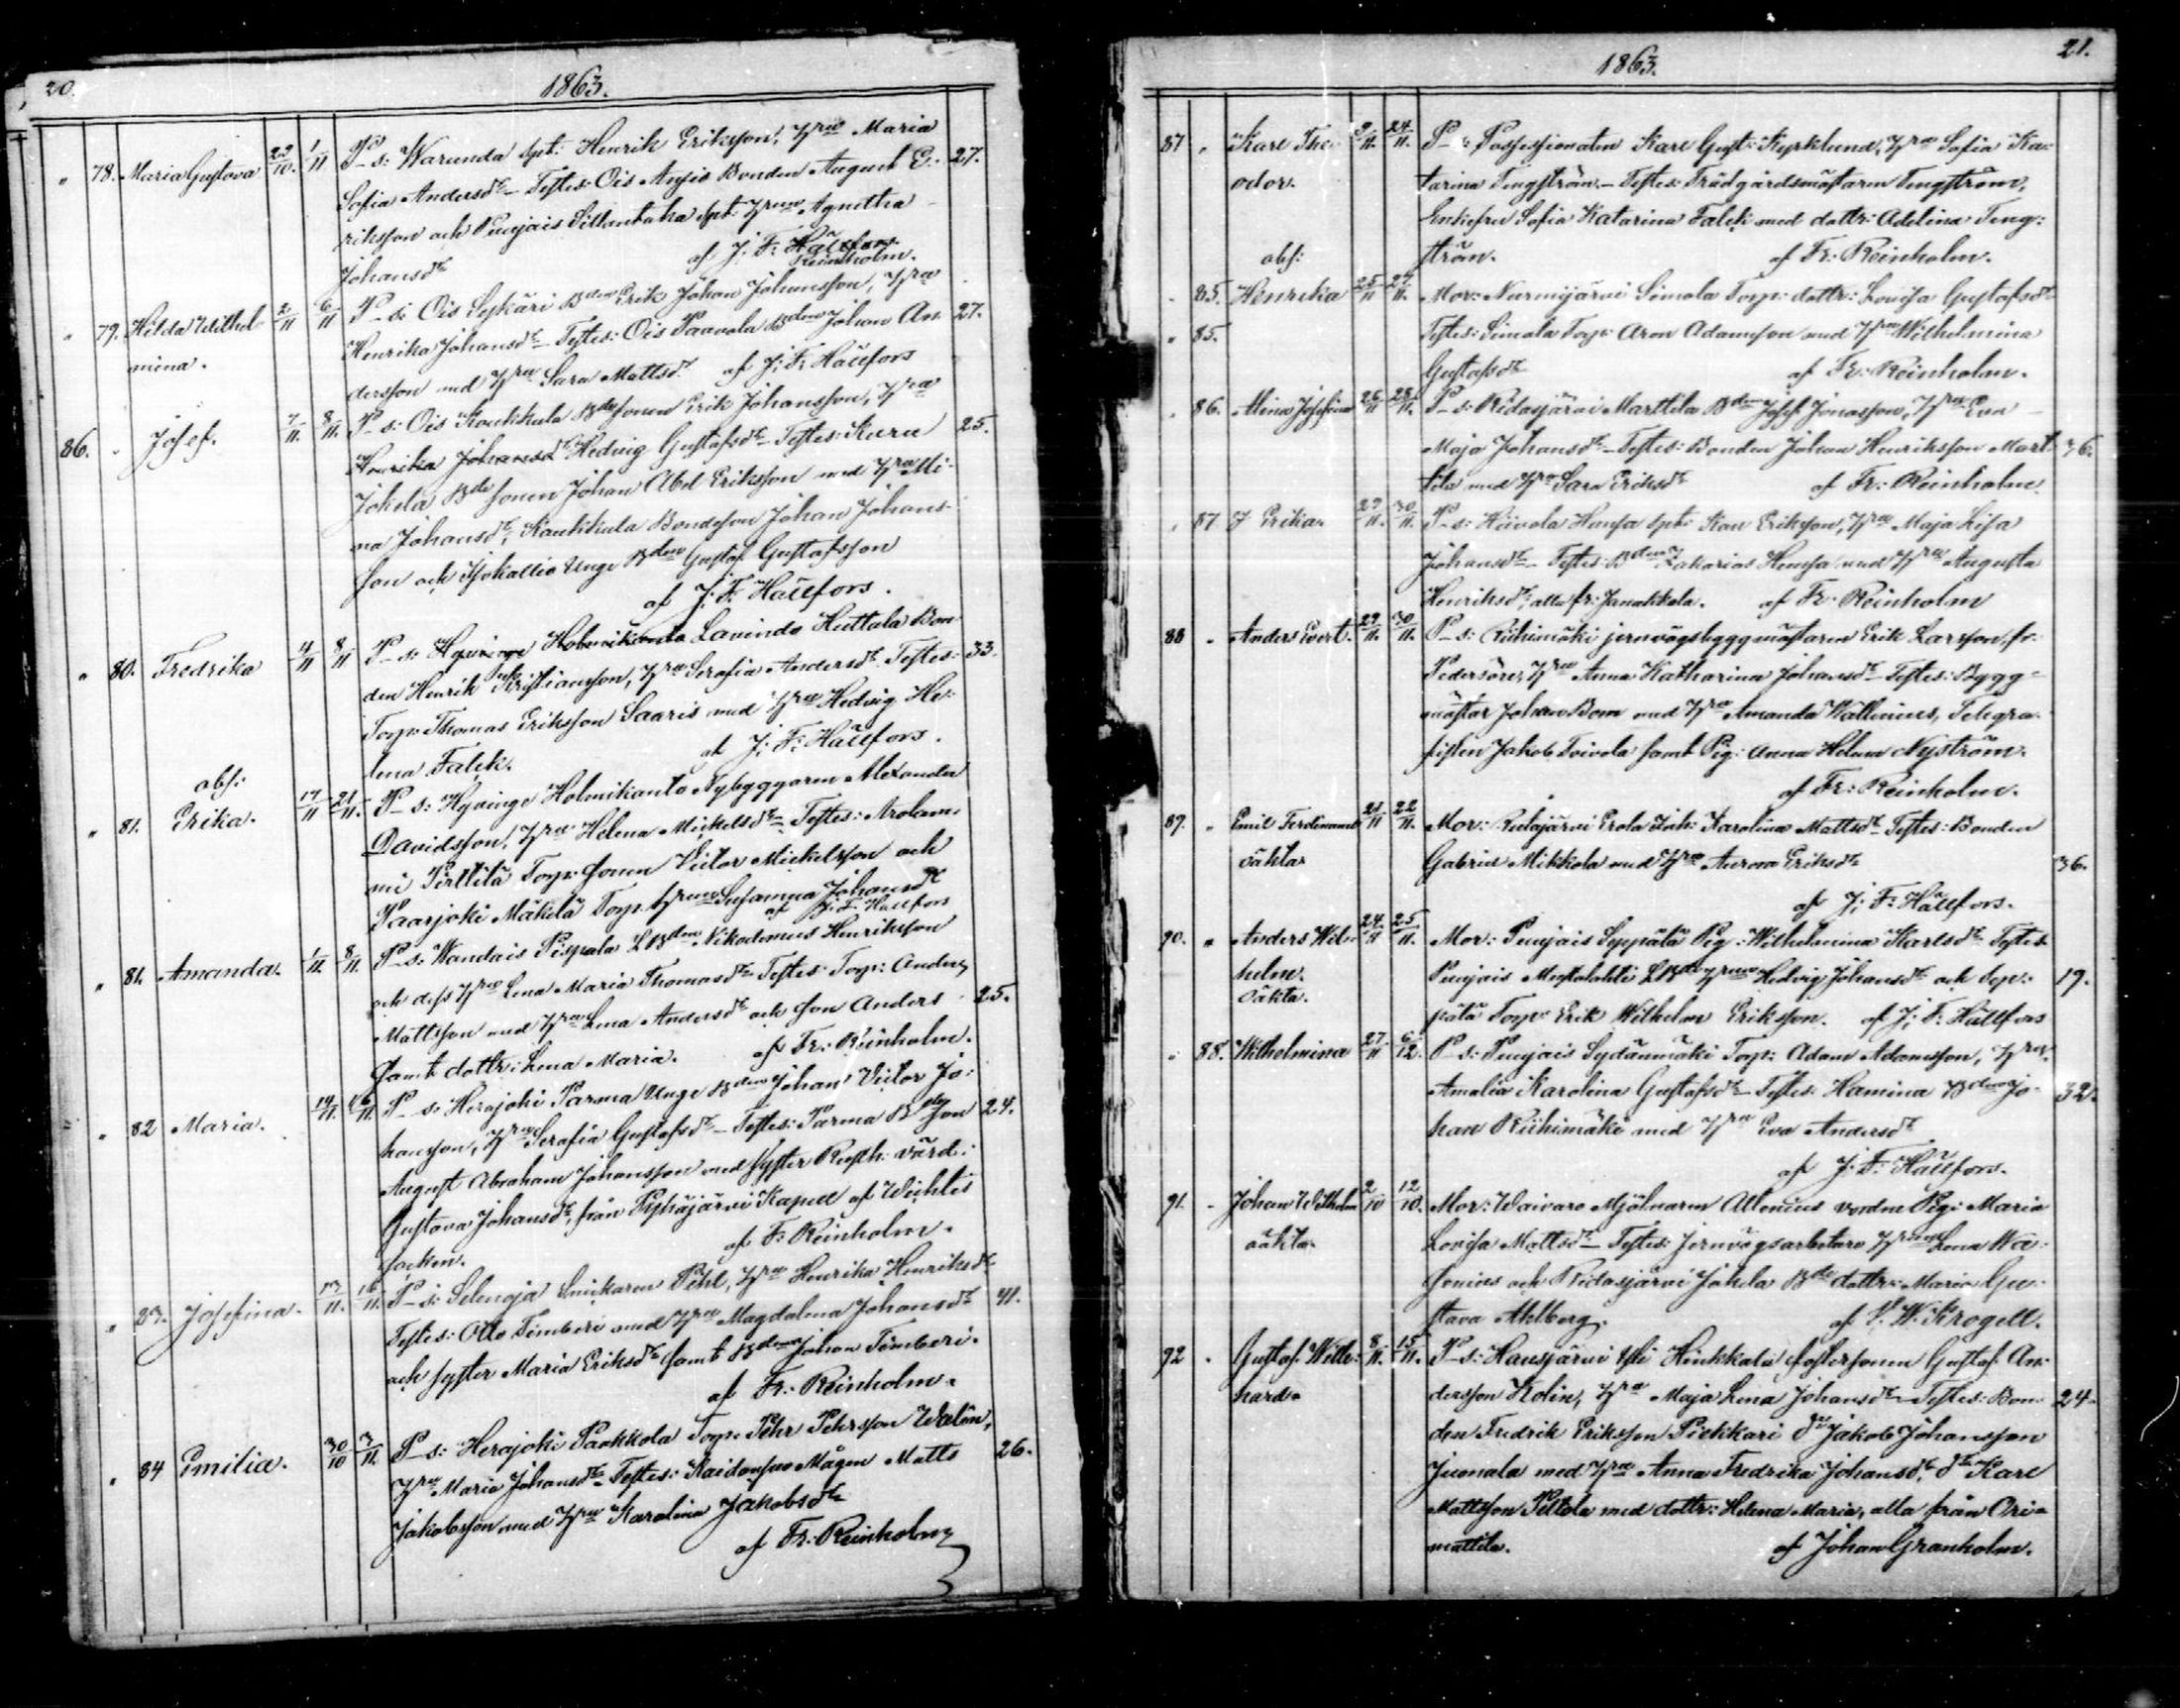 20.
1863.
" 78. Maria Gustava 29/10. 1/11 P-s: Warunda spt: Henrik Eriksson, Hru Maria
Sofia Andersdr – Testes: Ois Bonden August E. 27.
riksson och Puujais Sillantaka spt: Hrun Agnetha
Johansdr af J. F. Hällfors
Reinholm.
" 79. Hilda Wilhel 2/11 6/11 P-s: Ois Syväri Bden Erik Johan Johansson, Hru
mina. Henrika Johansdr – Testes: Ois Paavola Bden Johan An- 27.
dersson med Hru Sara Mattsdr af J. F. Hällfors
86. " Josef. 7/11. 8/11. P-s: Ois Koukkula Bdesonen Erik Johansson, Hru
Henrika Johansd Hedvig Gustafsdr – Testes: Kuru 25.
Jokela Bde sonen Johan Abel Eriksson med Hru Mi-
na Johansdr, Koukkula Bondeson Johan Johans-
son och Isokallio Unge Bden Gustaf Gustafsson
af J. F. Hällfors.
" 80. Fredrika 4/11 8/11 P-s: Hyvinge Holmrikanta Lavinda Huttala Bon-
den Henrik Kristiansson, Hru Serafia Andersdr Testes: 33.
Torp: Thomas Eriksson Saaris med Hru Hedvig He-
lena Falck. af J. F. Hällfors.
abs:
" 81. Erika. 17/11 21/11. P-s: Hyvinge Holmrikanta Nybyggaren Alexander
Davidsson, Hru Helena Mickelsdr – Testes: Arolam-
mi Pirttilä Torp: sonen Victor Mickelsson och
Paarjoki Mäkelä Torp: Hrun Susanna Johansdr
af J. F. Hällfors
" 81. Amanda. 1/11. 8/11. P-s: Wandais Pispala LBden Nikodemus Henriksson
och dess Hru Lena Maria Thomasdr – Testes: Torp: Anders
Mattsson med Hru Lena Andersdr och son Anders 25.
samt dottr: Lena Maria. af Fr: Reinholm.
" 82 Maria. 14/11. 16/11. P-s: Herajoki Parma Unge Bden Johan Victor Jo-
hansson, Hru Serafia Gustafsdr – Testes: Parma Bdeson 24.
August Abraham Johansson med syster Rusth: värd:
Gustava Johansdr, från Pyhäjärvi Kapell af Wichtis
socken. af F. Reinholm.
" 83. Josefina. 13/11. 16/11. P-s: Selenoja Snickaren Pihl, Hru Henrika Henriksdr
Testes: Otto Timberi med Hru Magdalena Johansdr 41.
och syster Maria Eriksdr samt Bden Johan Timberi.
af Fr: Reinholm.
" 84 Emilia. 30/10 3/11. P-s: Herajoki Paokkola Torp: Pehr Pehrsson Walén,
Hru Maria Johansdr – Testes: Mågen Matts 26.
Jakobsson med Hru Karolina Jakobsdr
af Fr: Reinholm
1863.
21.
87 " Karl The- 3/11. 24/11. P-s: Possessionaten Karl Gust: Kyrklund, Hru Sofia Ka-
odor. tarina Tengström. – Testes: Trädgårdsmästaren Tengström,
Enkefru Sofia Katarina Falck med dottr: Adelina Teng-
abs: ström. af Fr: Reinholm.
" 85. Henrika 25/11 27/11. Mor: Nurmijärvi Simola Torp: dottr: Lovisa Gustafsdr
" 85. Testes: Simola Torp: Aron Adamsson med Hru Wilhelmina
Gustafsdr af Fr: Reinholm.
" 86. Alina Josefina 26/11 28/11. P-s: Ridasjärvi Marttila Bden Josef Jonasson, Hru Eva
Maja Johansdr – Testes: Bonden Johan Henriksson Mart- 36.
tila med Hru Sara Eriksdr af Fr: Reinholm.
" 87 F Erika. 29/11. 30/11. P-s: Hiivola Hemsa spt: Karl Eriksson, Hru Maja Lisa
Johansdr – Testes: Bden Zakarias Hemsa med Hru Augusta
Henriksdr, alla fr: Janakkala. af Fr: Reinholm
88 " Anders Evert. 29/11. 30/11. P-s: Riihimäki jernvägsbyggmästaren Erik Larsson fr:
Pedersöre, Hru Anna Katharina Johansdr – Testes: Bygg-
mästar Johan Bom med Hru Amanda Wallenius, Telegra-
fisten Jakob Toivola samt Pig: Anna Helena Nyström.
af Fr: Reinholm.
89. " Emil Ferdinand 21/11 22/11. Mor: Ridasjärvi Erola Inh: Karolina Mattsdr – Testes: Bonden
oäkta Gabriel Mikkola med Hru Aurora Eriksdr 36.
af J. F. Hällfors.
90. " Anders Wil- 24/11 25/11. Mor: Puujais Syppälä Pig: Wilhelmina Karlsdr Testes:
helm. Puujais Mustalahti LBde Hrun Hedvig Johansdr och Syp- 19.
oäkta. pälä Torp: Erik Wilhelm Eriksson. af J. F. Hällfors
" 88. Wilhelmina 27/11 6/12. P-s: Puujais Sydänmäki Torp: Adam Adamsson, Hru
Amalia Karolina Gustafsdr – Testes: Hamina Bden Jo- 32.
han Riihimäki med Hru Eva Andersdr
af J. F. Hällfors.
91. " Johan Wilhelm 2/10 12/10. Mor: Waivaro Mjölnaren Altonius vordne Pig: Maria
oäkta. Lovisa Mattsdr – Testes: Jernvägsarbetare Hrun Lena Wa-
lonius och Ridasjärvi Jokela Bde dottr: Maria Gu-
stava Ahlberg. af V. W. Krogell.
92 " Gustaf Wille- 8/11. 15/11. P-s: Hausjärvi Yli Hinkkala fostersonen Gustaf An-
hard. dersson Kolin, Hru Maja Lena Johansdr – Testes: Bon- 24.
den Fredrik Eriksson Piekkari do Jakob Johansson
Juonala med Hru Anna Fredrika Johansdr, do Karl
Mattsson Peltola med dottr: Helena Maria, alla från Ori-
mattila. af Johan Granholm.